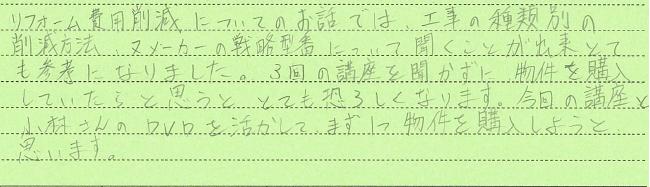 リフォーム費用削減についてのお話では、工事の種類別の
削減方法、又メーカーの戦略型番について聞くことが出来とて
も参考になりました。3回の講座を聞かずに物件を購入
していたらと思うと、とても恐ろしくなります。今回の講座と
小林さんのDVDを活かして、まず1つ物件を購入しようと
思います。